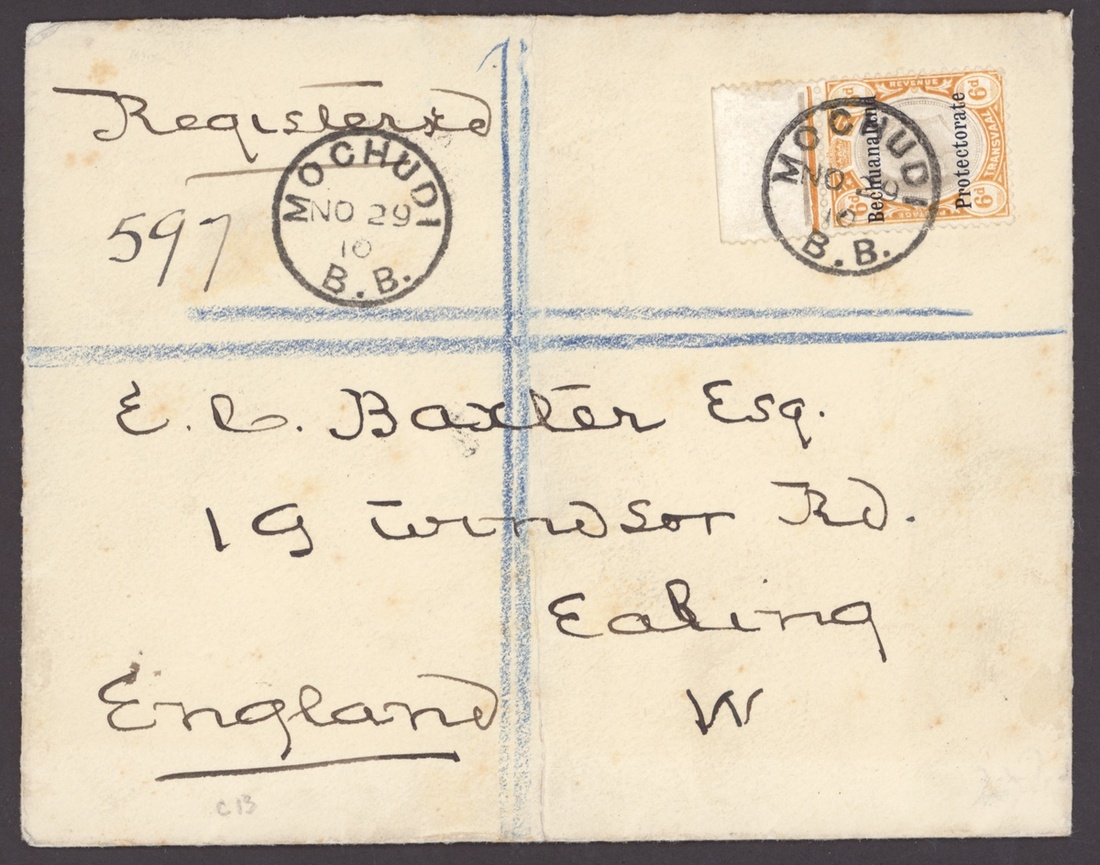 Registered
597
MOCHUDI
NO 29
10
B.B.
REVENUE
6d
TRANSVAAL
6d
6d
POSTAGE
Bechuanaland
Protectorate
MOCHUDI
NO 29
10
B.B.
E. C. Baxter Esq.
19 Windsor Rd.
Ealing
W
England
C13